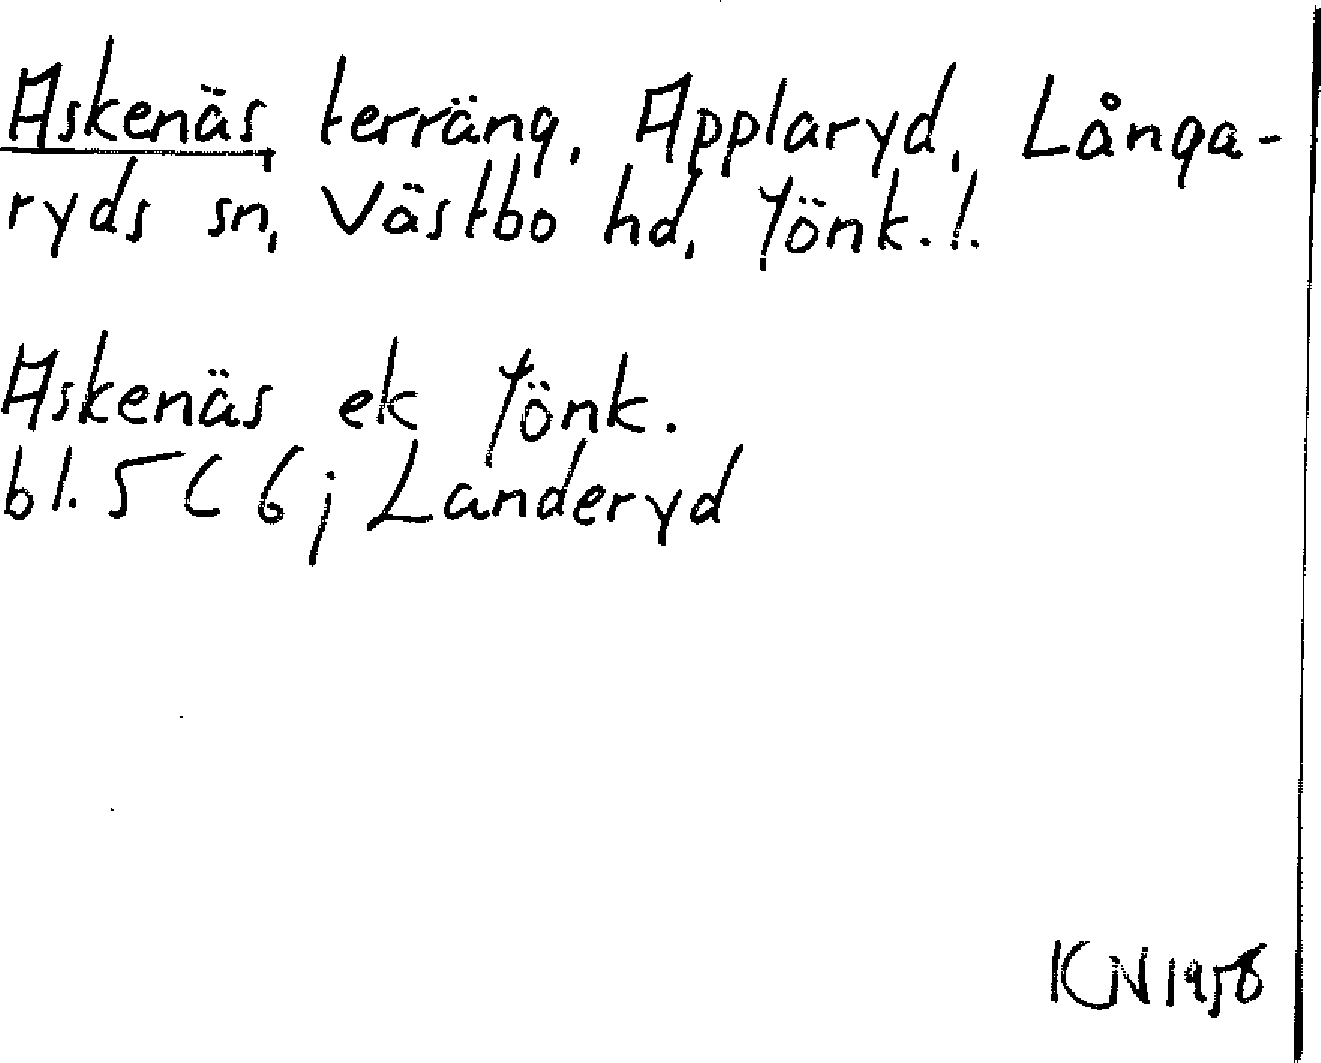 Askenäs, terräng, Applaryd, Långa-
ryds sn, Västbo hd, Jönk. l.
Askenäs ek Jönk.
bl. 5 C 6 j Landeryd
KN 1958